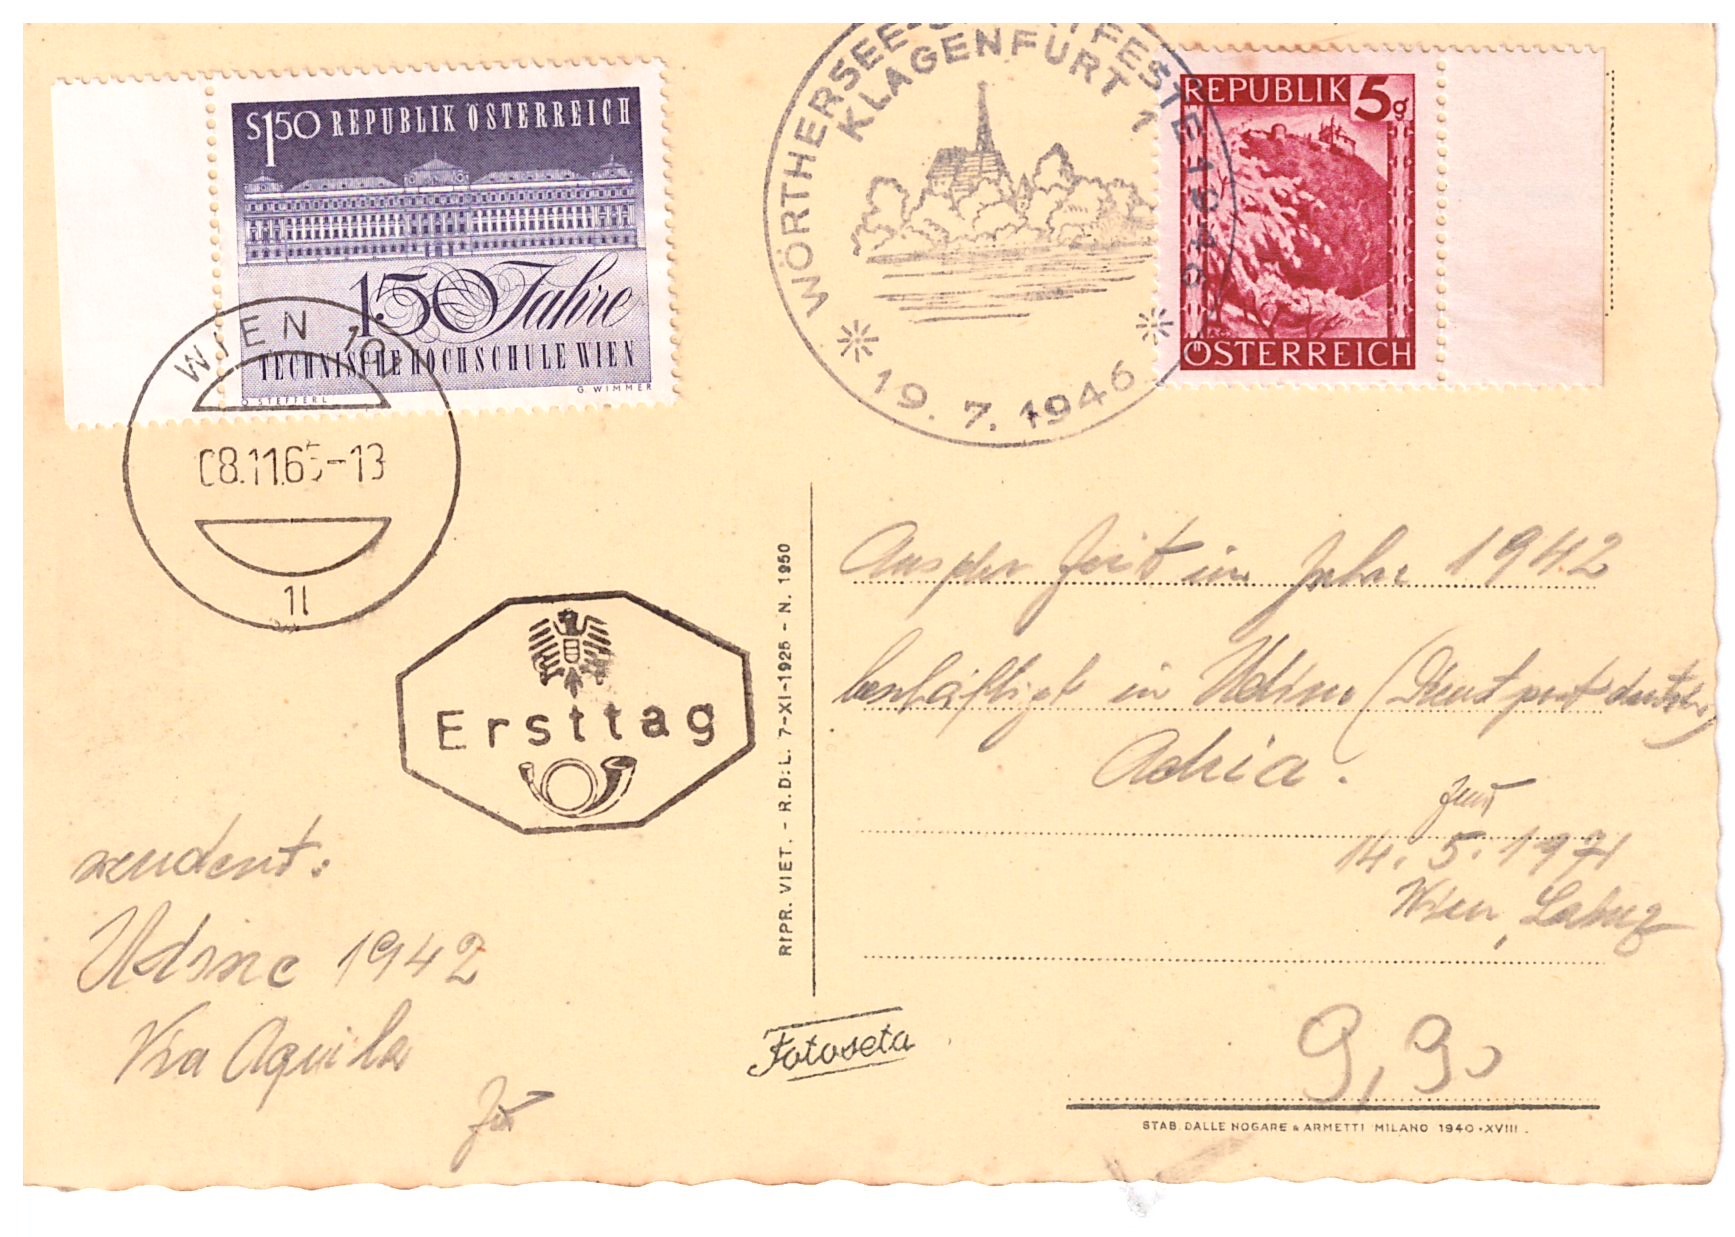 S1.50 REPUBLIK ÖSTERREICH
150 Jahre
TECHNISCHE HOCHSCHULE WIEN
O. STEFFERL
G. WIMMER
WIEN 10
08.11.65-13
11
WÖRTHERSEE- FESTE
KLAGENFURT 1
19.7.1946
REPUBLIK 5g
ÖSTERREICH
Ersttag
RIPR. VIET. - R.D.L. 7-XI-1925 - N. 1950
Aus der Zeit im Jahre 1942
beschäftigt in Udine (
Adria.
14.5.1971
Wien,
Udine 1942
Via Aquila
Fotoseta
9,90
STAB. DALLE NOGARE & ARMETTI MILANO 1940-XVIII